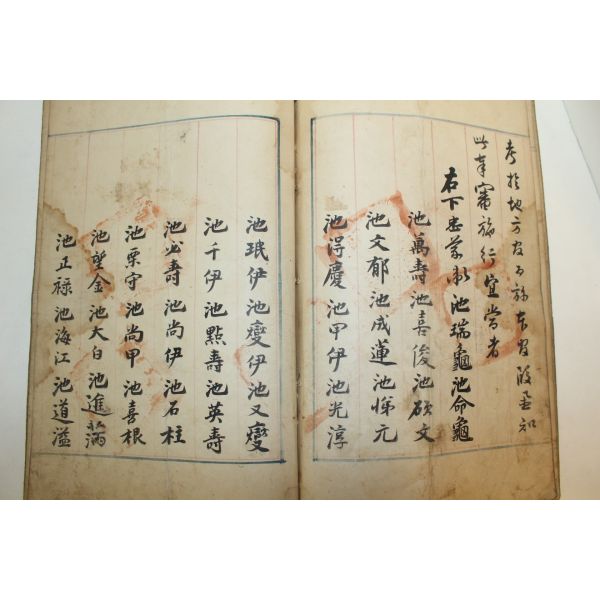 考於地方官
此事審施行宜當者
右下忠義衛池瑞龜池命龜
池萬壽池喜俊池碩文
池文郁池成蓮池悌元
池得慶池甲伊池光淳
池珉伊池燮伊池又燮
池千伊池點壽池英壽
池必壽池尚伊池石柱
池栗守池尚甲池喜根
池聖金池大白池進滿
池正祿池海江池道溢